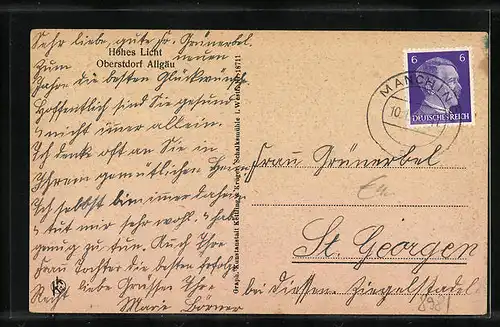 Sehr liebe, gute Fr. Grünerbel.
Hohes Licht
Oberstdorf Allgäu
Zum neuen
Jahre die besten Glückwünsche
Hoffentlich sind Sie gesund
u. nicht immer allein.
Ich denke oft an Sie in
Ihrem gemütlichen Heim
Ich selbst bin immer daheim
tut mir sehr wohl. habe
genug zu tun. Auch Ihre
Frau Tochter die besten
Recht liebe Grüssen Ihre
Marie Börner
Graph. Kunstanstalt
6 6
DEUTSCHES REICH
MANCHING
10.
Frau Grünerbel
St. Georgen
bei Diessen. Ziegelstadel